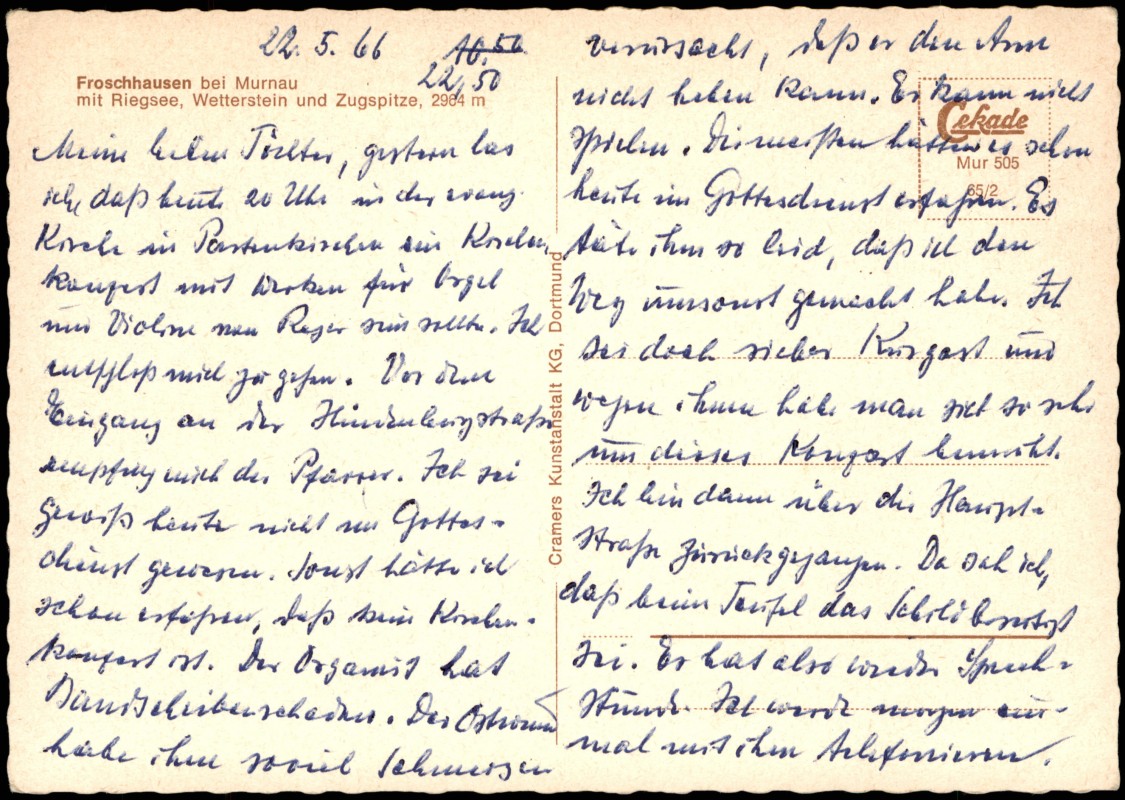 22. 5. 66
10.50
22,50
Froschhausen bei Murnau
mit Riegsee, Wetterstein und Zugspitze, 2964 m
Meine lieben Töchter, gestern las
ich, daß heute 20 Uhr in der evang.
Kirche in Partenkirchen ein Kirchen-
konzert mit Werken für Orgel
und Violine von Reger sein sollte. Ich
entschloß mich zu gehen. Vor dem
Eingang an der Hindenburgstraße
empfing mich der Pfarrer. Ich sei
gewiß heute nicht im Gottes-
dienst gewesen. Sonst hätte ich
schon erfahren, daß kein Kirchen-
konzert ist. Der Organist hat
Bandscheibenschaden. Der Ostwind
habe ihm soviel Schmerzen
verursacht, daß er den Arm
nicht heben kann. Er kann nicht
spielen. Die meisten hätten es schon
heute im Gottesdienst erfahren. Es
täte ihm so leid, daß ich den
Weg umsonst gemacht habe. Ich
sei doch sicher Kurgast und
wegen ihnen habe man sich so sehr
um dieses Konzert bemüht.
Ich bin dann über die Haupt-
straße zurückgegangen. Da sah ich,
daß beim Teufel das Schild beseitigt
sei. Er hat also wieder Sprech-
stunde. Ich werde morgen ein-
mal mit ihm telefonieren.
Cekade
Mur 505
65/2
Cramers Kunstanstalt KG, Dortmund